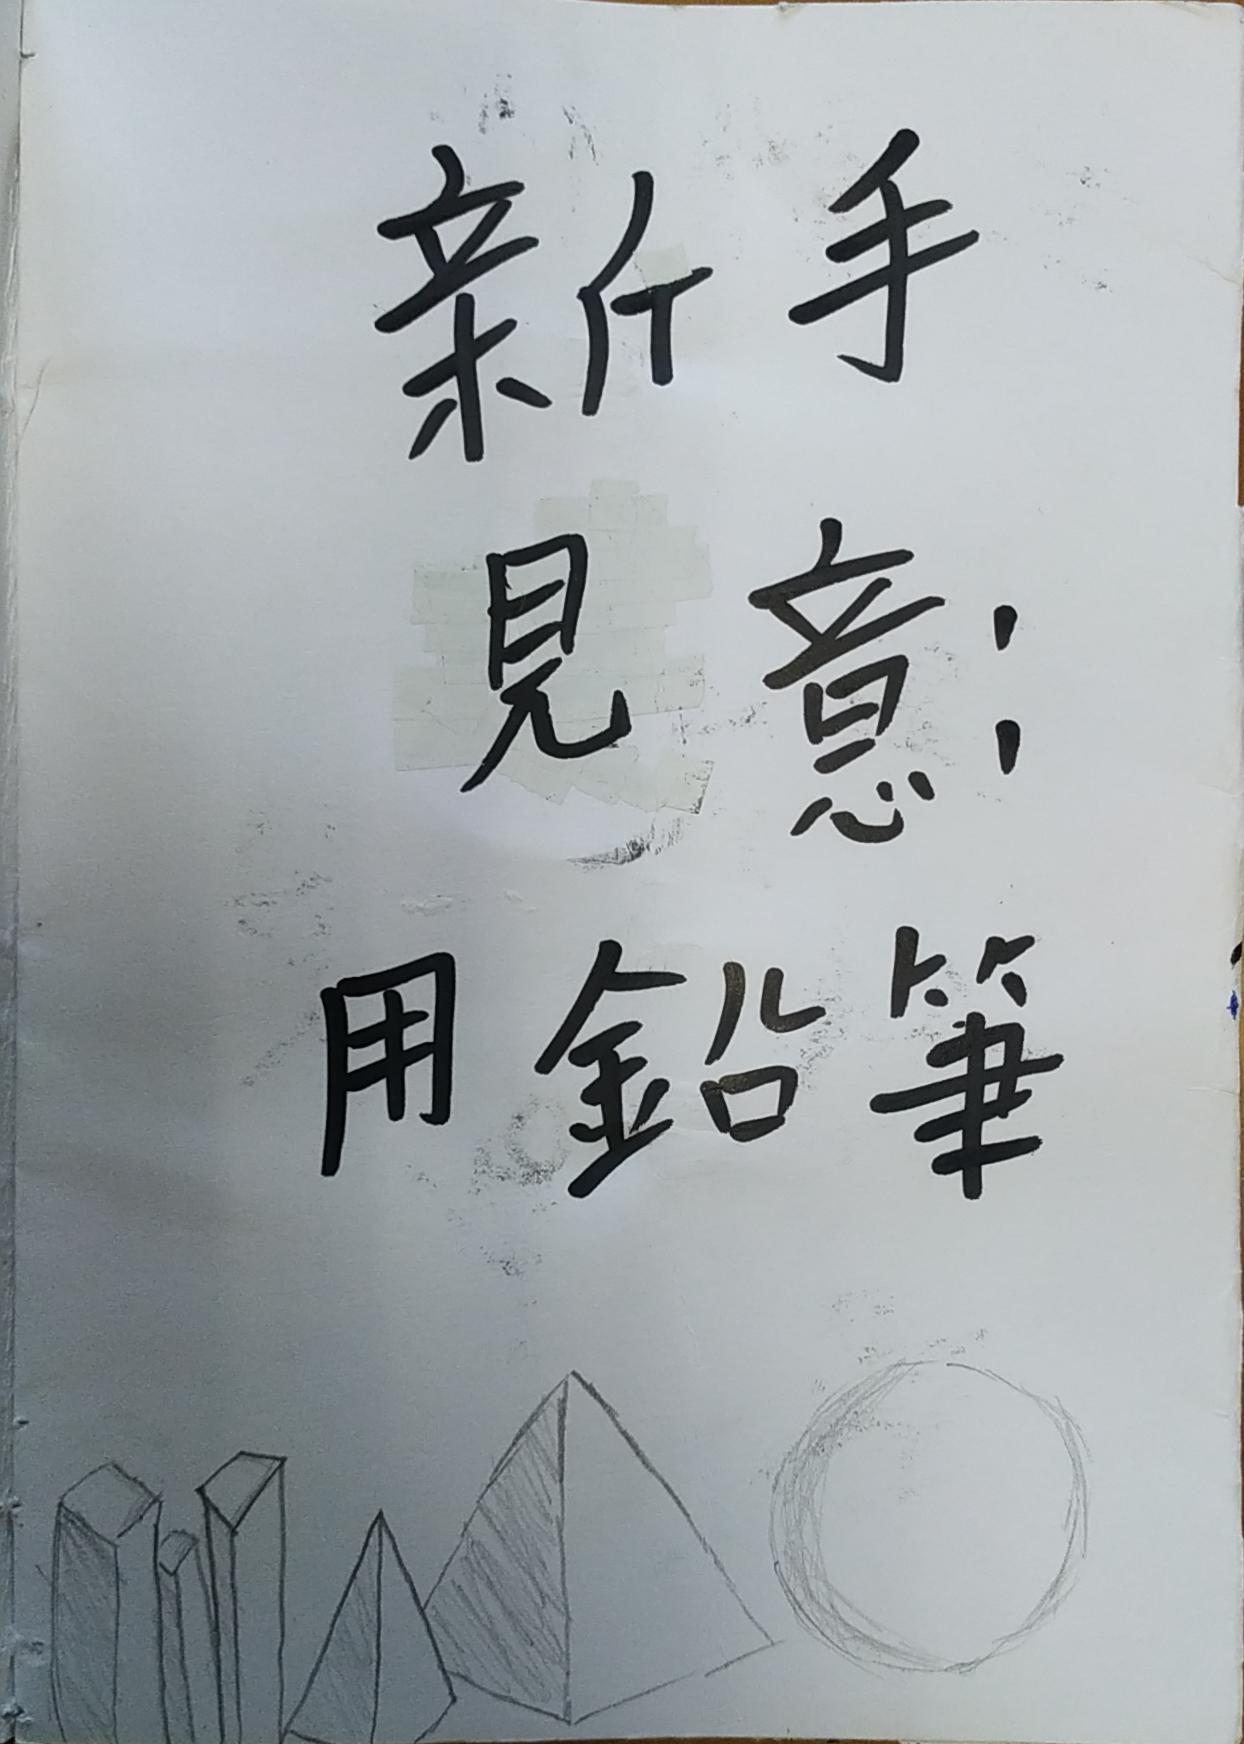 新手
見意:
用鉛筆